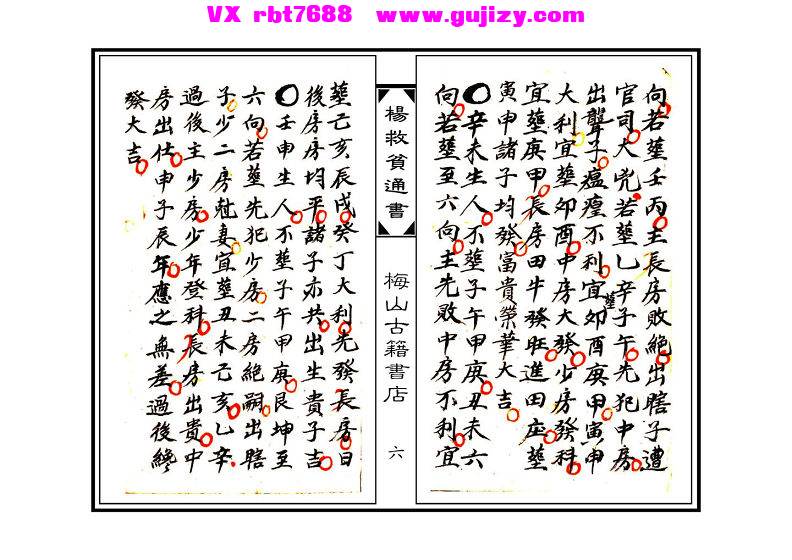 VX rbt7688 www.gujizy.com
向若塟壬丙主長房敗絕出瞎子遭
官司大兇若塟乙辛子午先犯中房
出聾子瘟瘽不利宜塟卯酉庚甲寅申
大利宜塟卯酉中房大發少房發科
宜塟庚甲長房田牛發旺進田庄塟
寅申諸子均發富貴榮華大吉
〇辛未生人不塟子午甲庚丑未六
向若塟至六向主先敗中房不利宜
楊救貧通書
梅山古籍書店
六
塟乙亥辰戌癸丁大利先發長房日
後房房均平諸子亦共出生貴子吉
〇壬申生人不塟子午甲庚艮坤至
六向若塟先犯少房二房絕嗣出瞎
子少二房尅妻宜塟丑未己亥乙辛
過後主少房少年登科長房出貴中
房出仕申子辰年應之無差過後終
發大吉